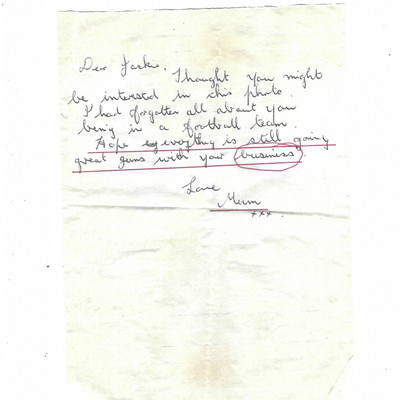 Dear Jackie,
Thought you might
be intersted in this photo.
I had forgotten all about you
being in a football team.
Hope everythg is still going
great guns with your business
Love
Mum
xxx.